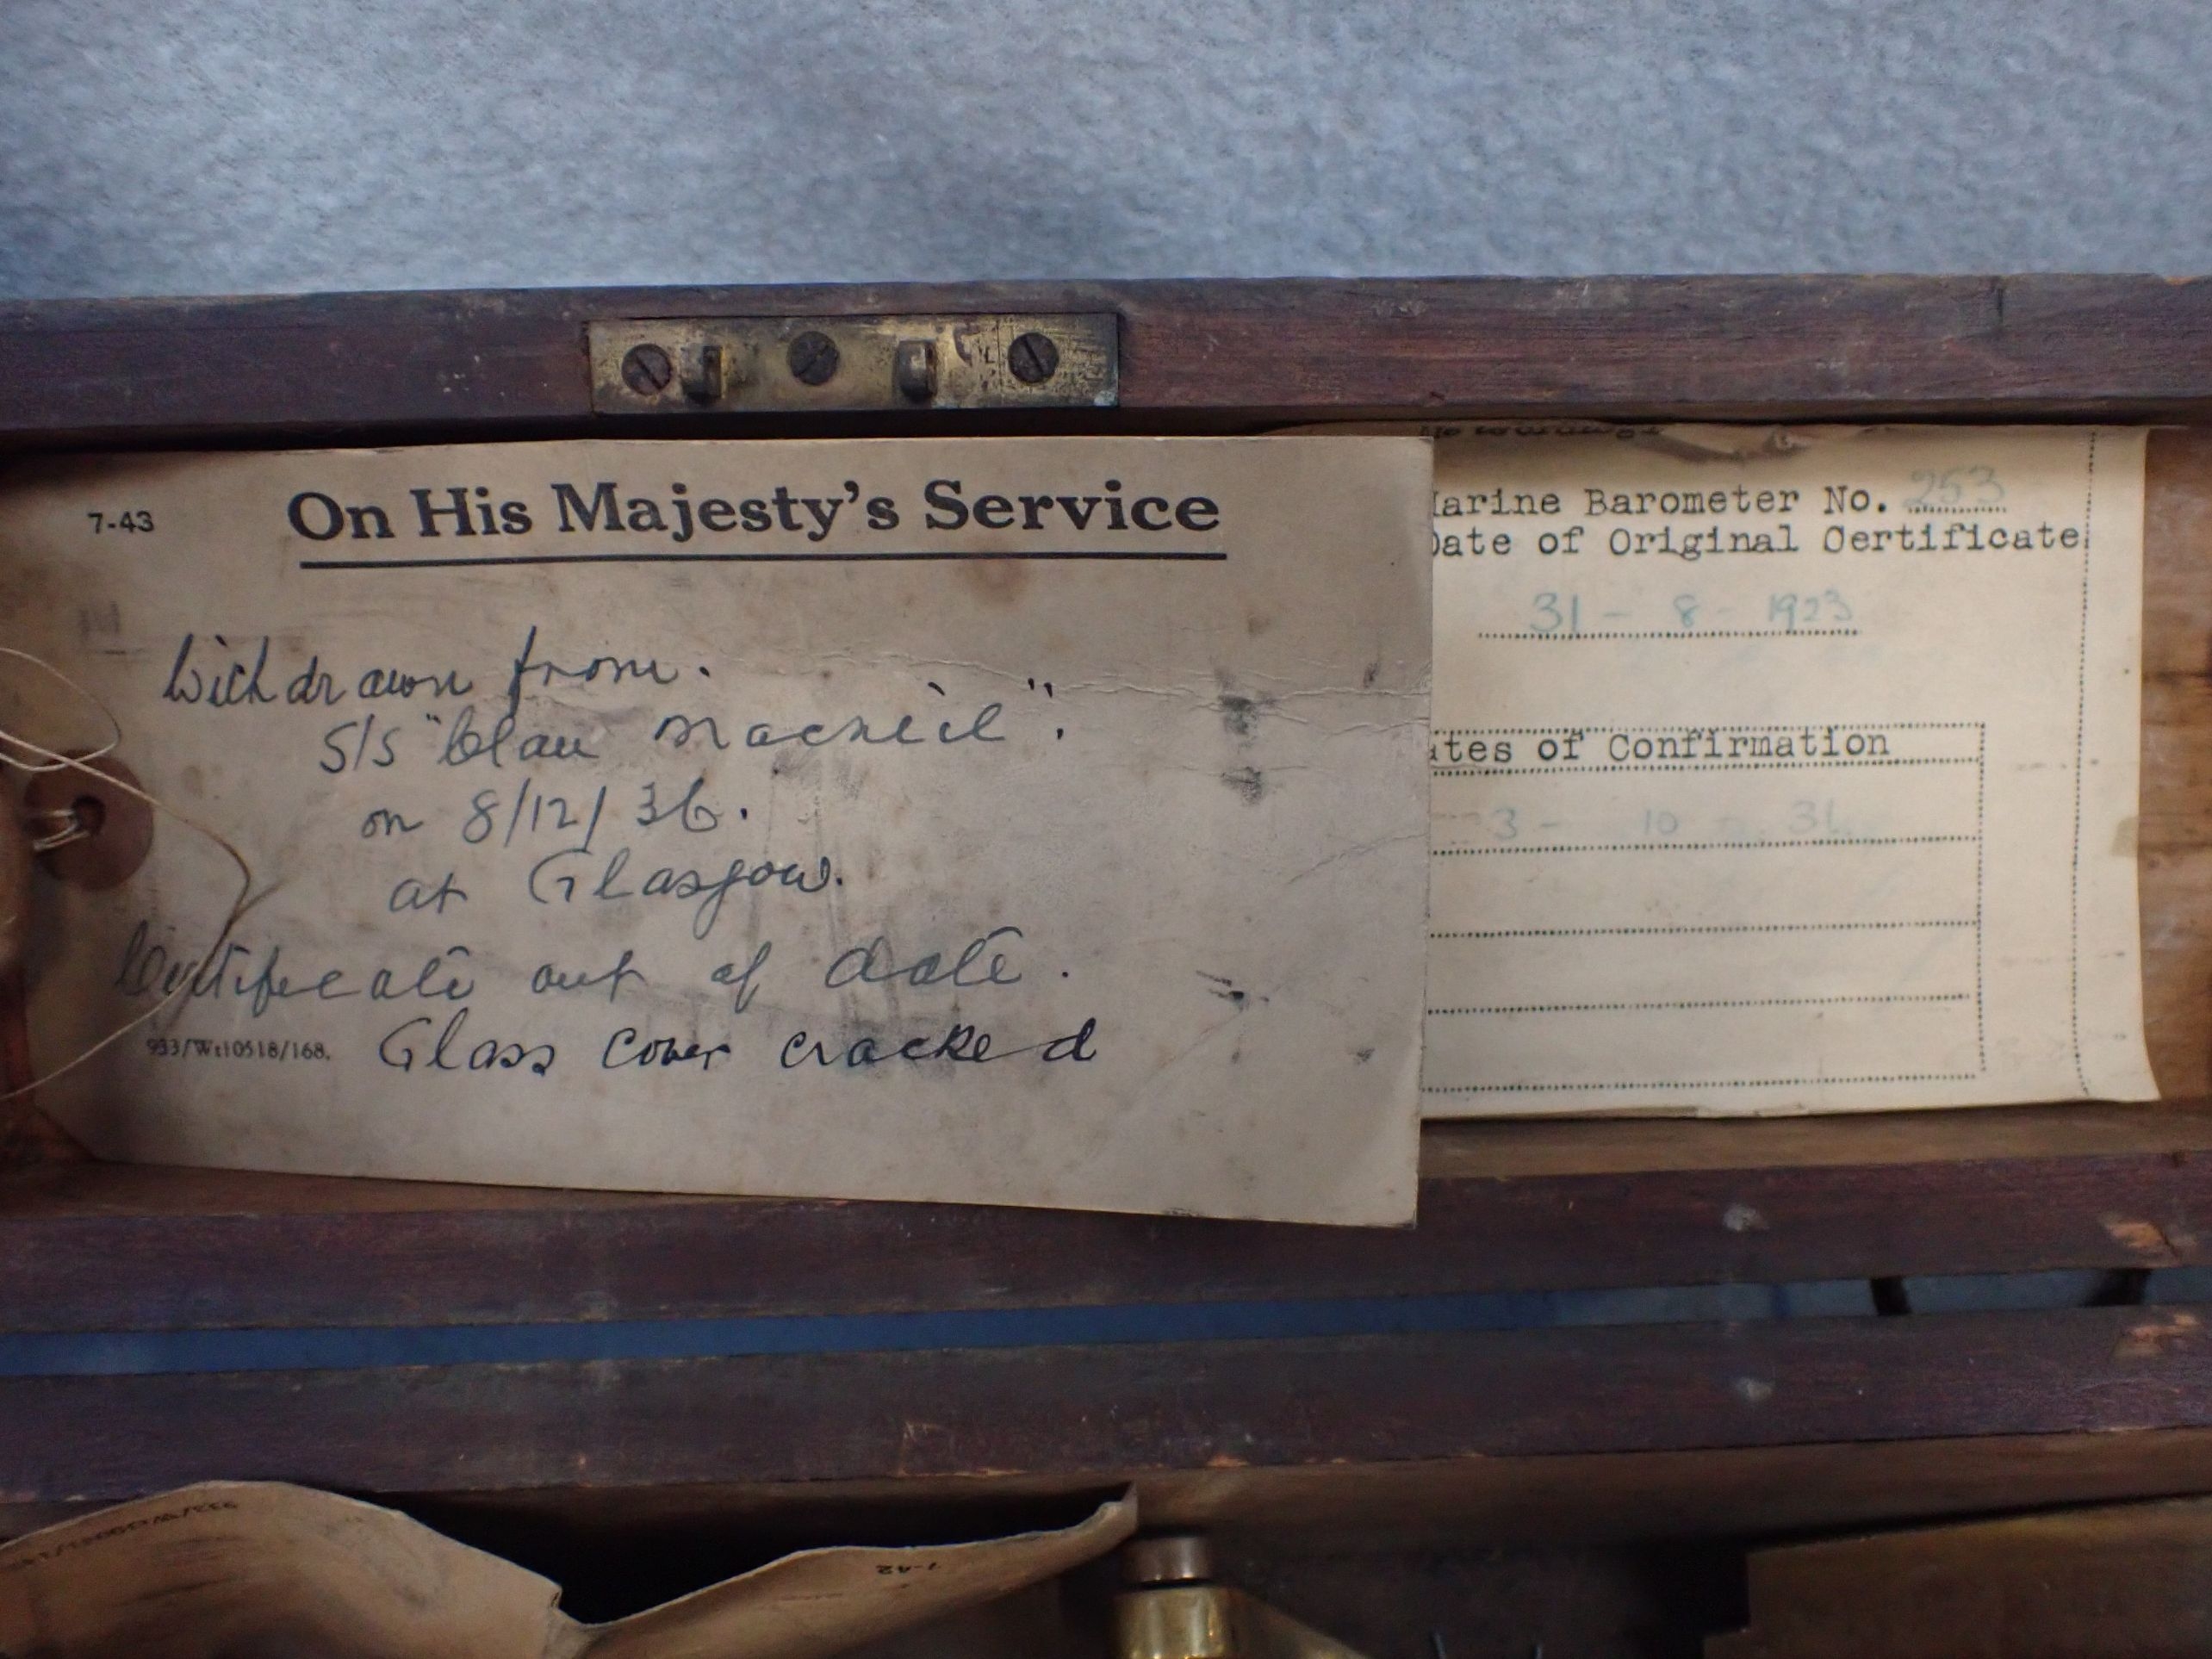 7-43
On His Majesty's Service
Withdrawn from.
S/S "Clan Macneil".
on 8/12/36.
at Glasgow.
Certificate out of date.
933/Wt10518/168.
Glass cover cracked
Marine Barometer No. 253
Date of Original Certificate
31 - 8 - 1923
ates of Confirmation
3 - 10 - 31
7-42